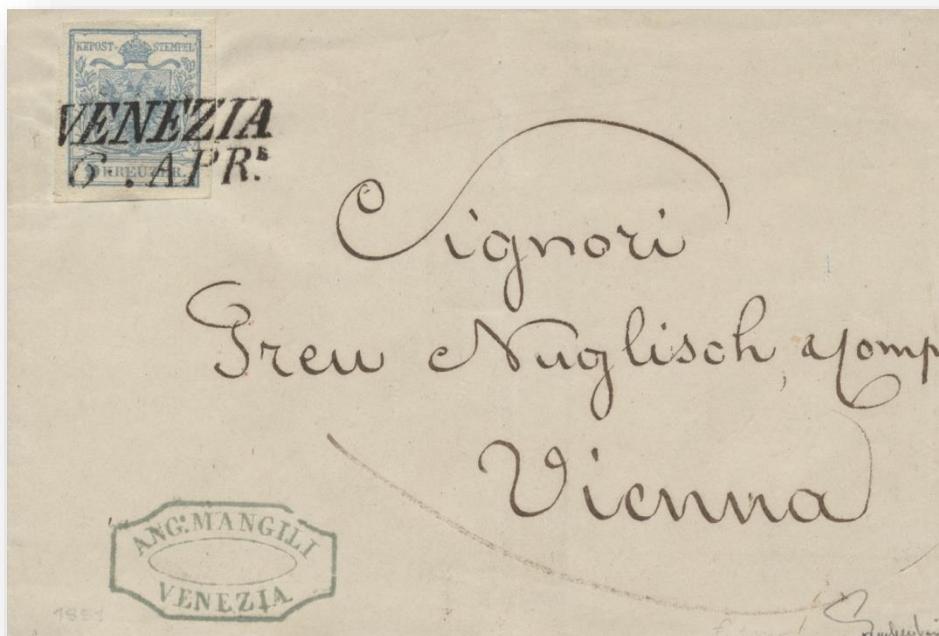 KKPOST-STEMPEL
VENEZIA
6. APR.E
9 KREUZER.
Signori
Treu Nuglisch, & Comp
Vienna
ANG: MANGILI
VENEZIA
1851